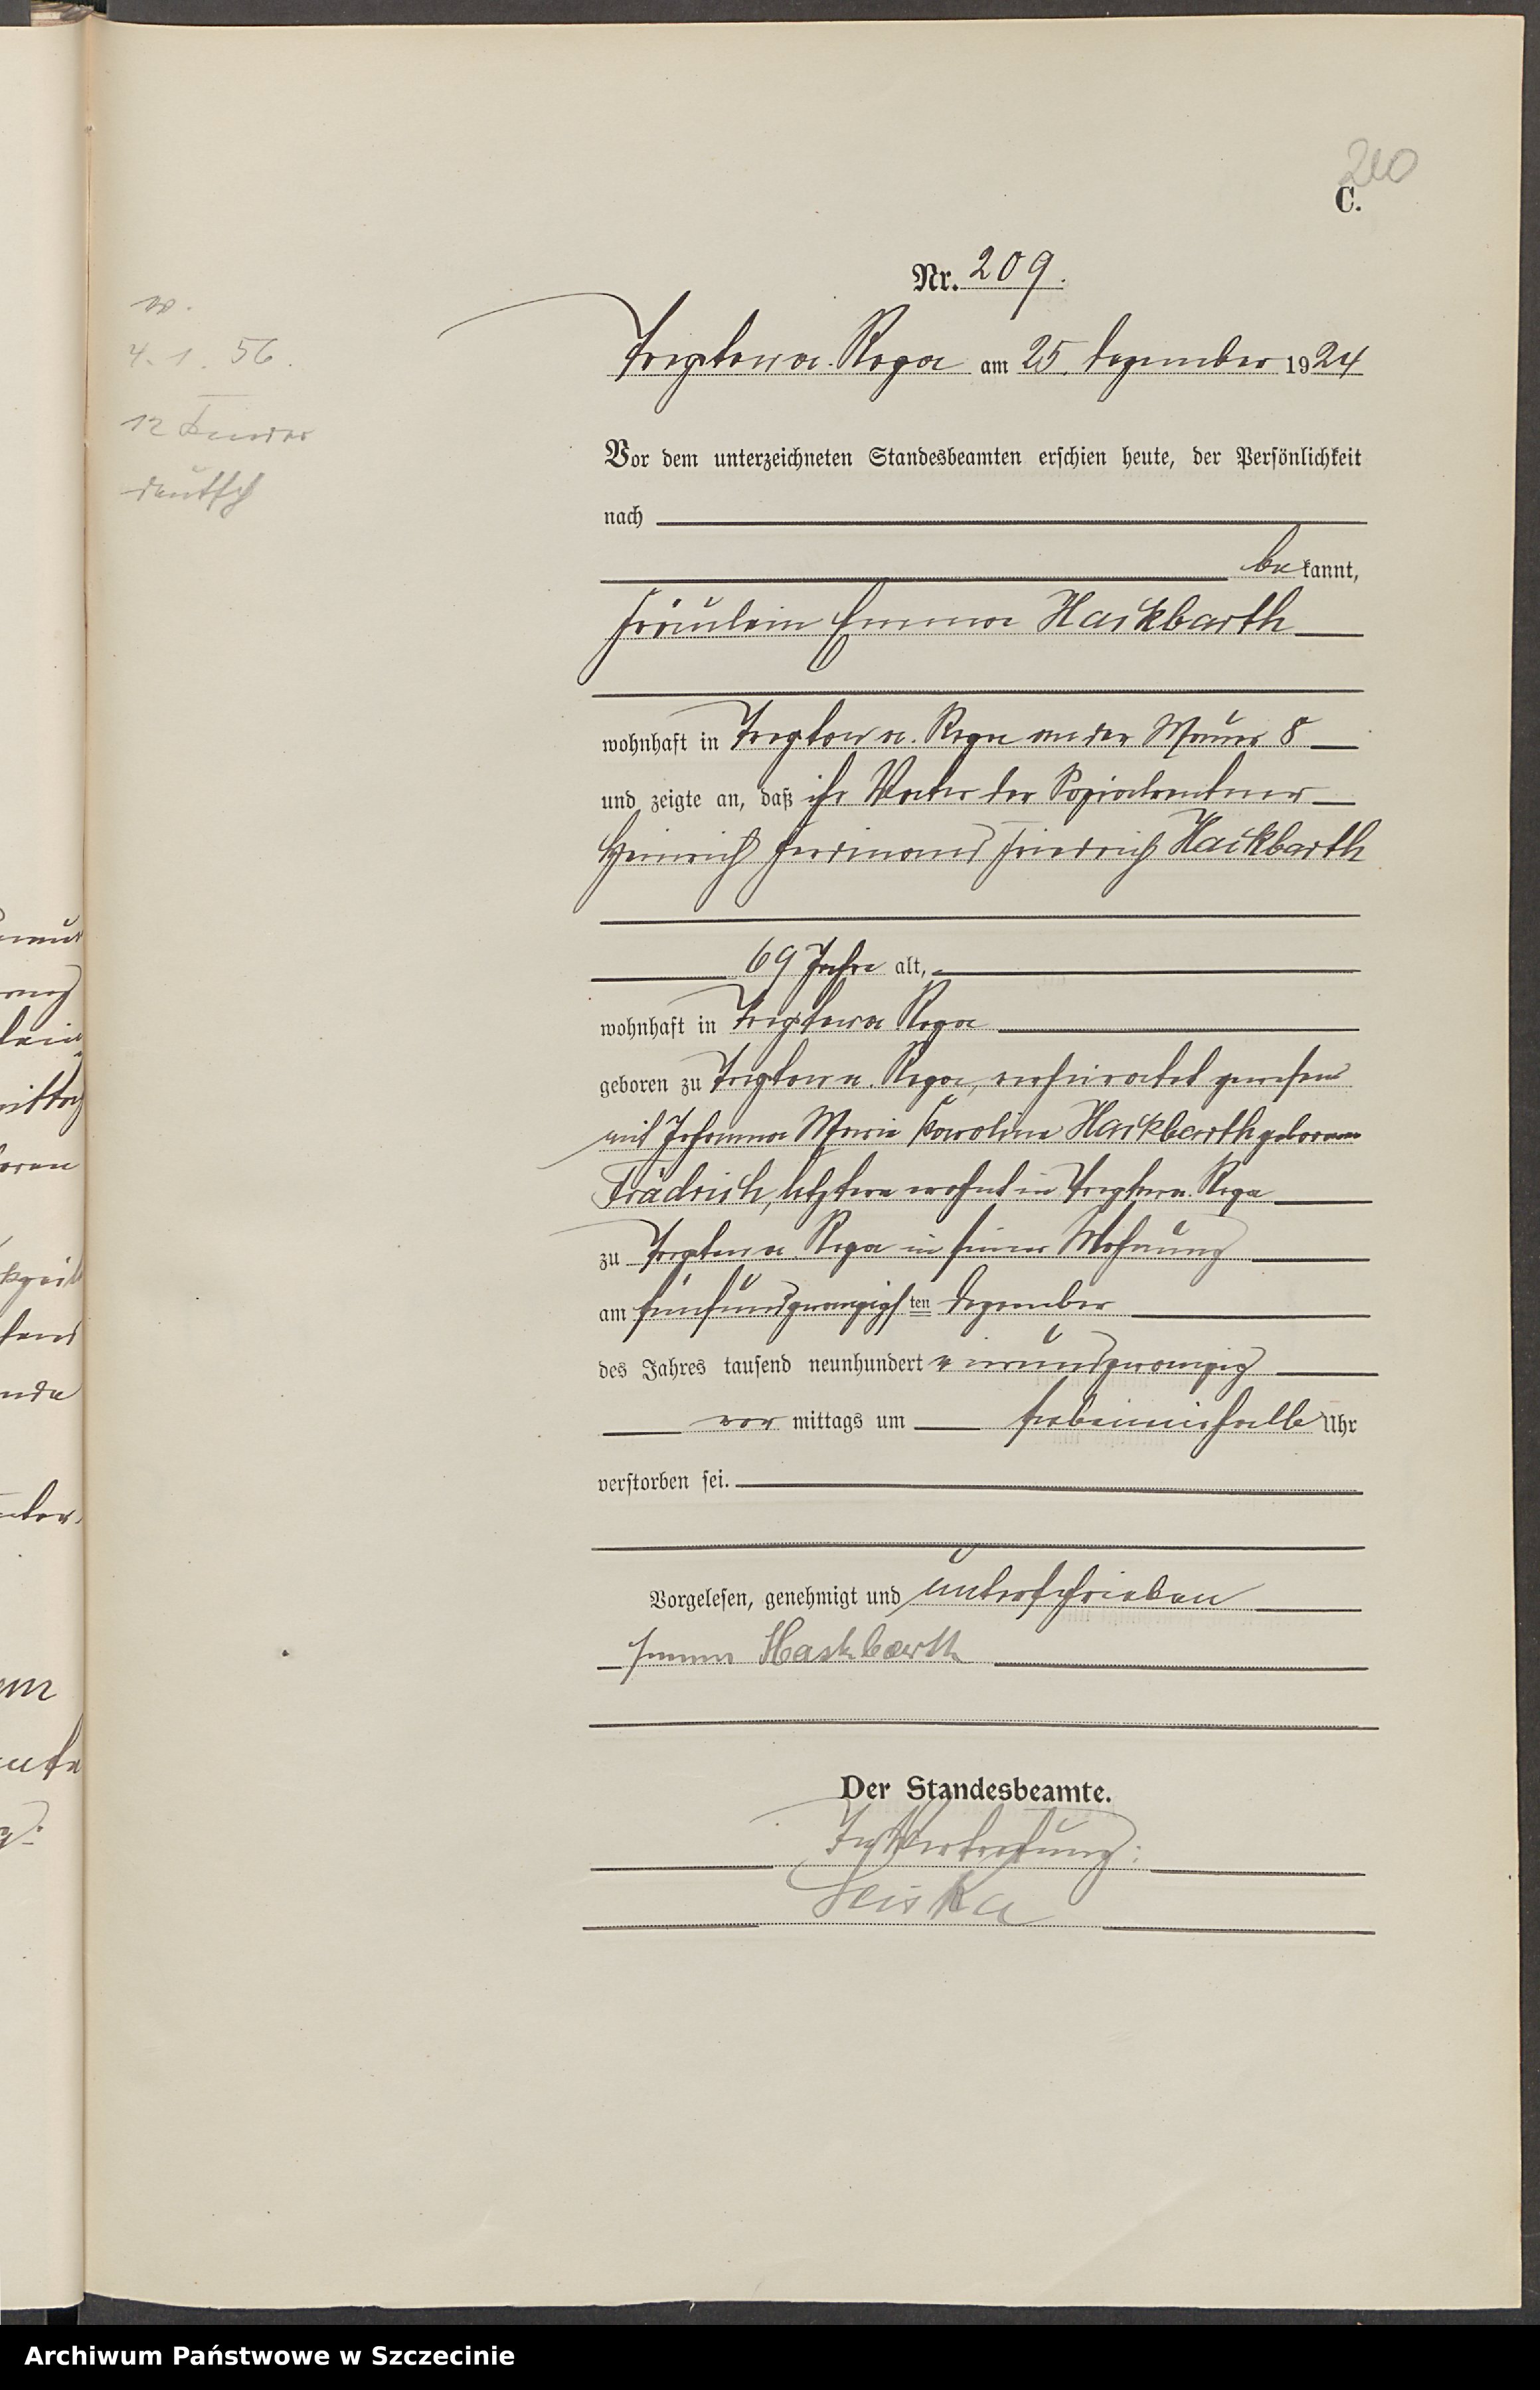 210
C.
Nr. 209.
Treptow a. Rega am 25. Dezember 1924
w.
4. 1. 56.
12 Kinder
deutsch
Vor dem unterzeichneten Standesbeamten erschien heute, der Persönlichkeit
nach
be kannt,
Fräulein Emma Hackbarth
wohnhaft in Treptow a. Rega an der Mauer 8
und zeigte an, daß ihr Vater der Sozialrentner
Heinrich Ferdinand Friedrich Hackbarth
69 Jahre alt,
wohnhaft in Treptow a Rega
geboren zu Treptow a. Rega, verheiratet gewesen
mit Johanna Marie Karoline Hackbarth geborene
Frädrich, letztere wohnt in Treptow a. Rega
zu Treptow a. Rega in seiner Wohnung
am fünfundzwanzigsten Dezember
des Jahres tausend neunhundert vierundzwanzig
vor mittags um siebeneinhalb Uhr
verstorben sei.
Vorgelesen, genehmigt und unterschrieben
Emma Hackbarth
Der Standesbeamte.
In Vertretung:
Archiwum Państwowe w Szczecinie